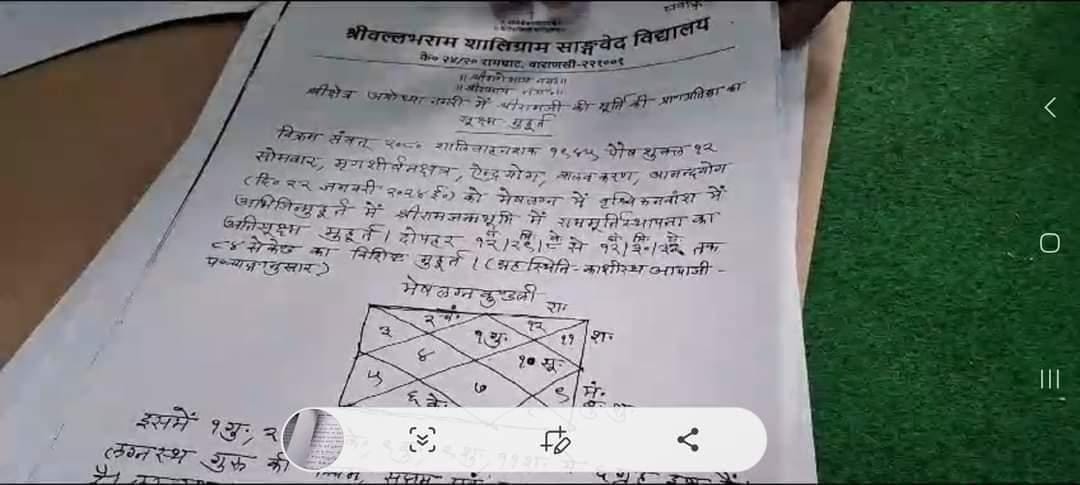 श्रीवल्लभराम शालिग्राम साङ्गवेद विद्यालय
के० २४/२० रामघाट, वाराणसी-२२१००१
॥ श्रीगणेशाय नमः॥
श्रीक्षेत्र अयोध्या नगरी में श्रीरामजी की मूर्ति की प्राणप्रतिष्ठा का
सूक्ष्म मुहूर्त
विक्रम संवत् २०८० शालिवाहनशक १९४५ पौष शुक्ल १२
सोमवार, मृगशीर्षनक्षत्र, ऐन्द्रयोग, बालवकरण, आनन्दयोग
(दि० २२ जनवरी २०२४ ई०) को मेषलग्न में वृश्चिकनवांश में
अभिजिन्मुहूर्त में श्रीरामजन्मभूमि में राममूर्तिस्थापना का
अतिसूक्ष्म मुहूर्त। दोपहर १२।२९।८ से १२।३०।३२ तक
८४ सेकेण्ड का विशिष्ट मुहूर्त। (ग्रहस्थिति - काशीस्थ आपाजी -
पञ्चाङ्गानुसार)
मेषलग्न कुण्डली
रा॰
३ २ चं॰ १ गु॰ १२ ११ श॰
४ १० सू॰
५ ७ ९ मं॰
६ के॰
इसमें १ गु॰, २
लग्नस्थ गुरु की